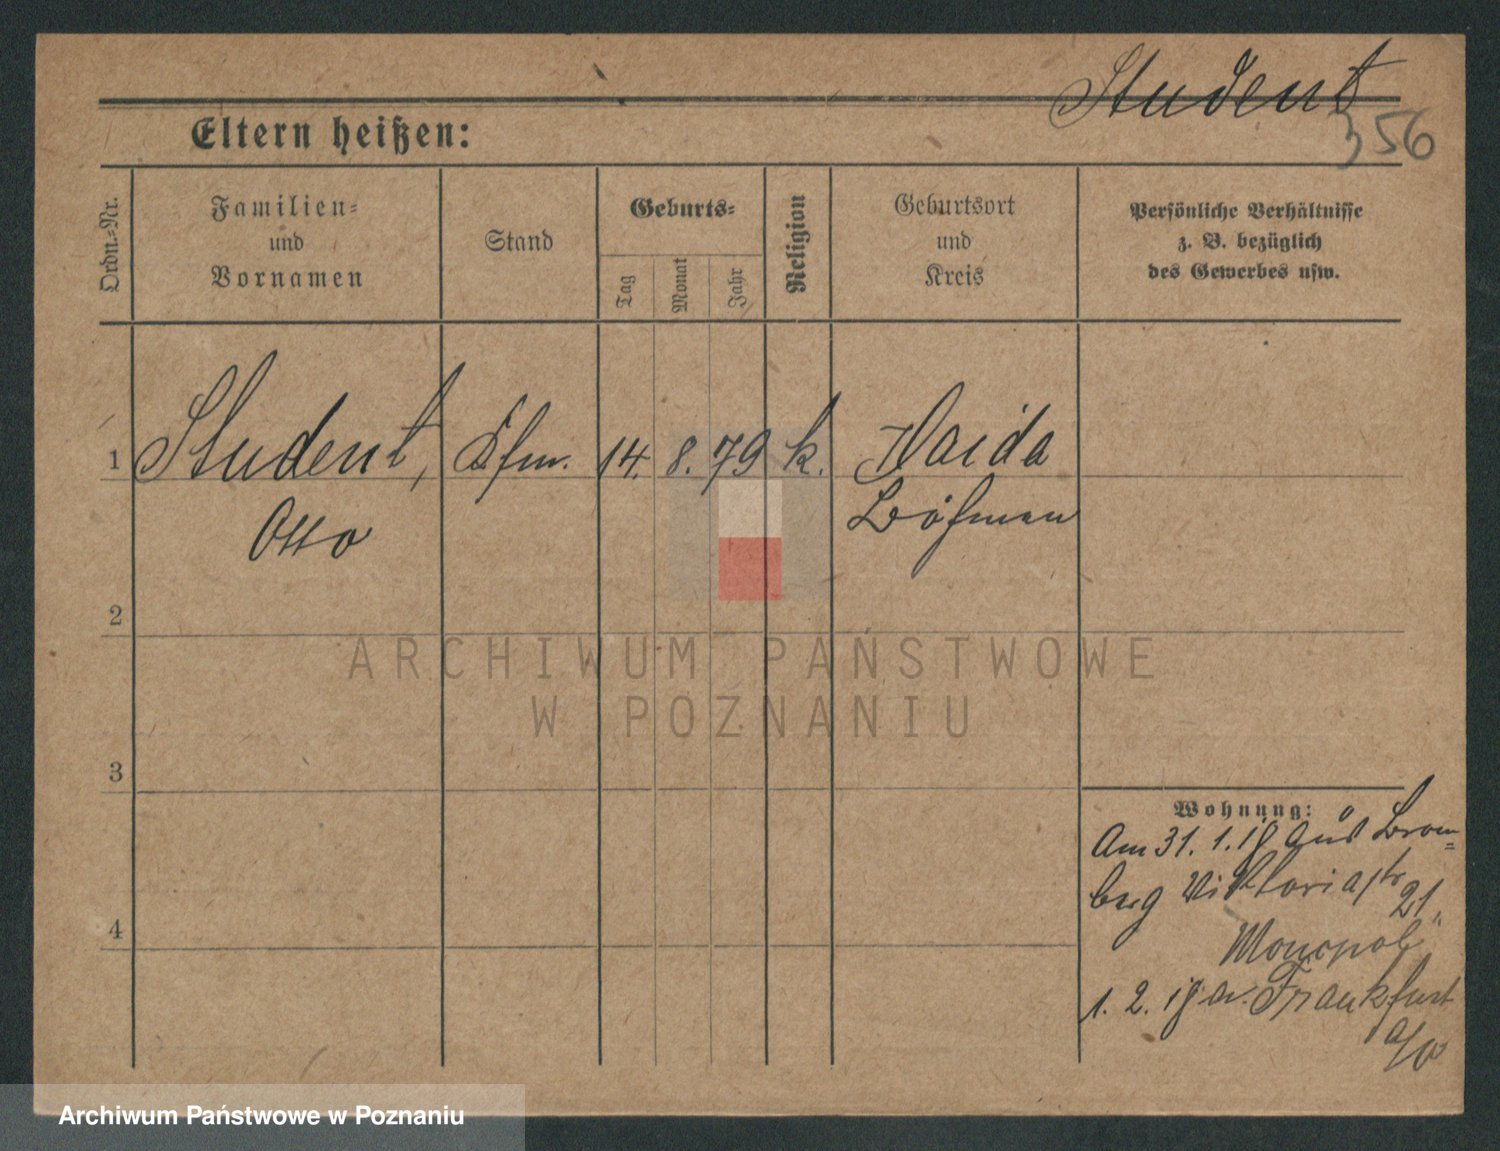 Student
356
Eltern heißen:
Ordn.-Nr.
Familien-
und
Vornamen
Stand
Geburts-
Tag
Monat
Jahr
Religion
Geburtsort
und
Kreis
Persönliche Verhältnisse
z. B. bezüglich
des Gewerbes usw.
1 Student, Kfm. 14. 8. 79 k. Haida
Otto Böhmen
2
ARCHIWUM PAŃSTWOWE
W POZNANIU
3
Wohnung:
Am 31. 1. 18 aus Brom=
berg Viktoriastr
21.
"Monopol"
1. 2. 18 n. Frankfurt
a/O
4
Archiwum Państwowe w Poznaniu